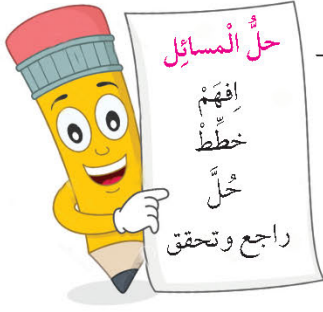 حلُّ الْمسائِل
اِفهَمْ
خطِّطْ
حُلَّ
راجع وتحقق